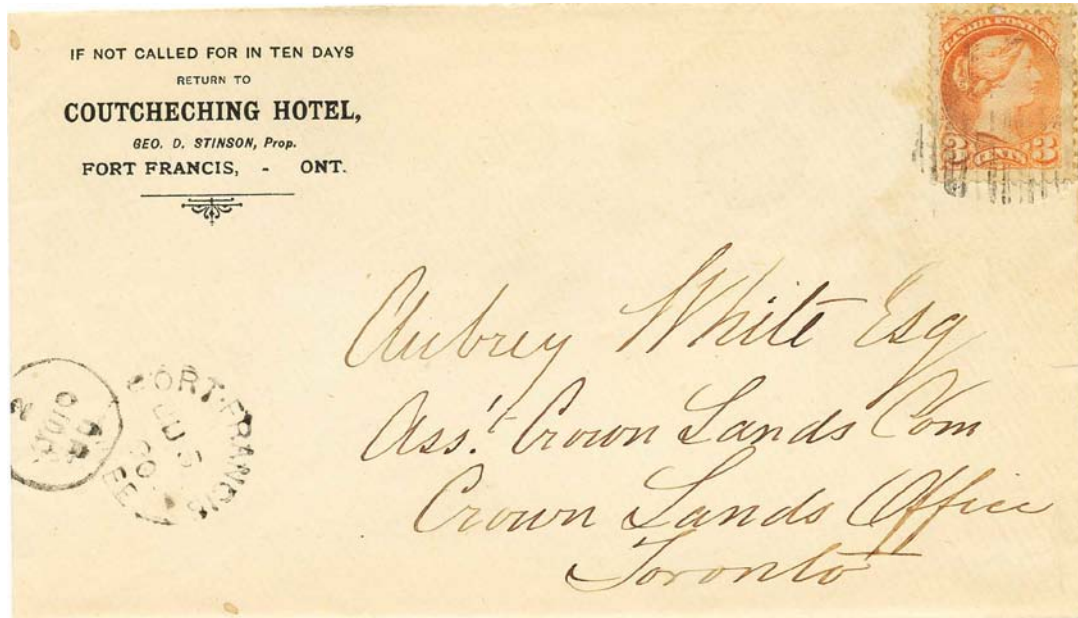 IF NOT CALLED FOR IN TEN DAYS
RETURN TO
COUTCHECHING HOTEL,
GEO. D. STINSON, Prop.
FORT FRANCIS, - ONT.
CANADA POSTAGE
3 CENTS 3
Aubrey White Esq
Ass't Crown Lands Com
Crown Lands Office
Toronto
FORT-FRANCIS